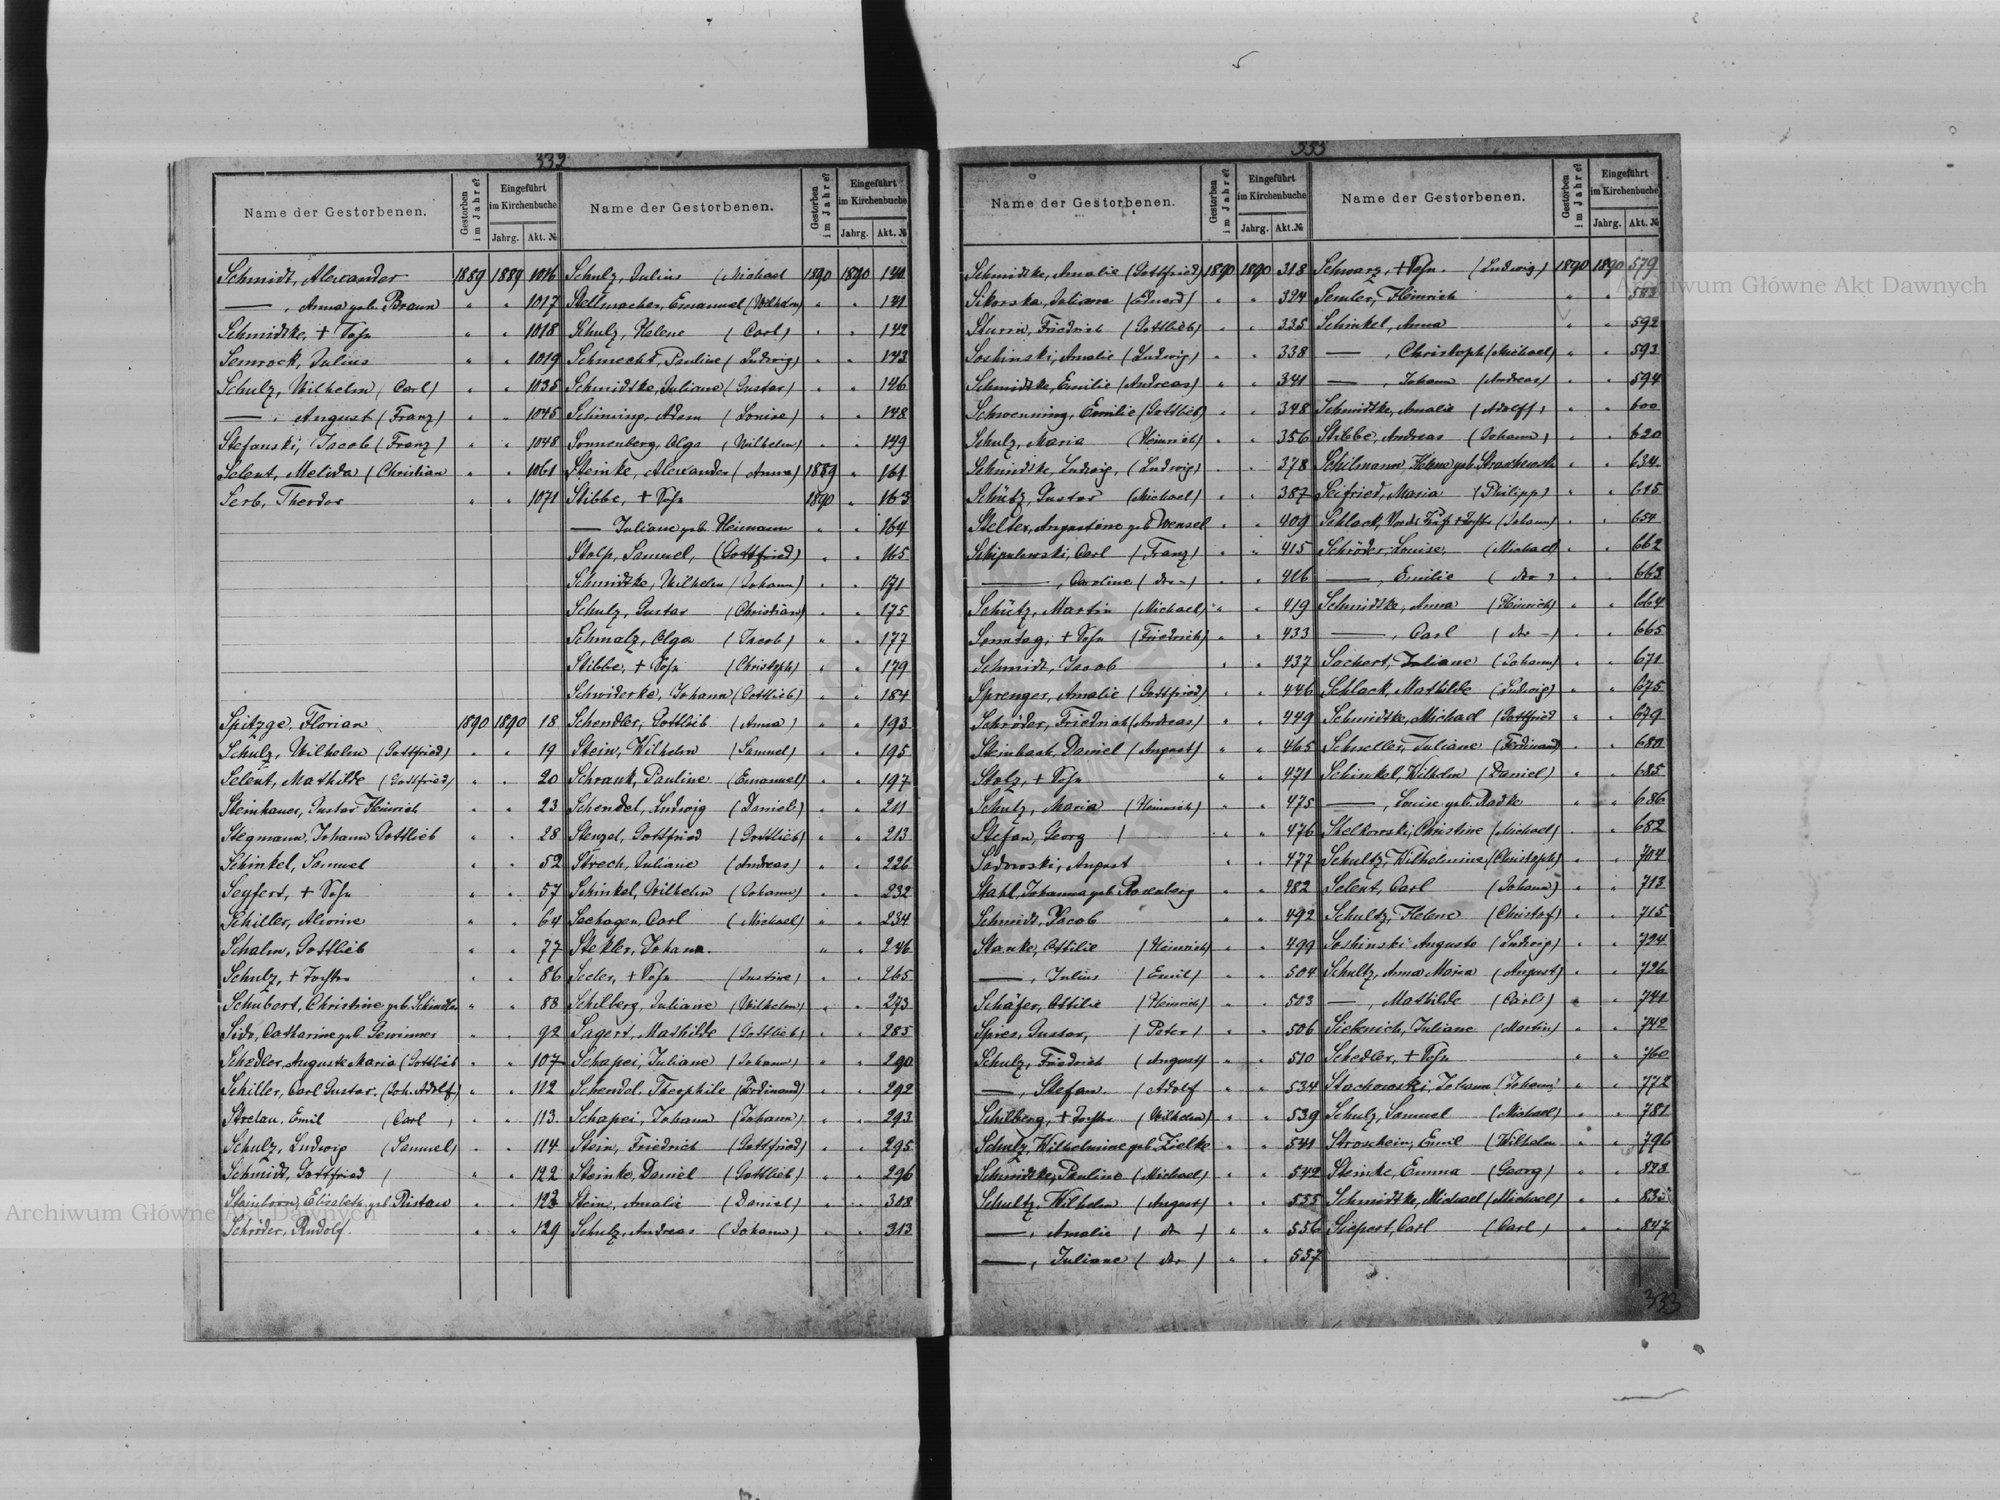 332
Name der Gestorbenen.
Gestorben im Jahre?
Eingeführt im Kirchenbuche
Jahrg. Akt. №
Schmidt, Alexander 1889 1889 1016
—, Anna geb. Braun " " 1017
Schmidtke, + Sohn " " 1018
Semrock, Julius " " 1019
Schulz, Wilhelm (Carl) " " 1035
—, August (Franz) " " 1045
Stefanski, Jacob (Franz) " " 1048
Selent, Melida (Christian " " 1061
Serb, Theodor " " 1071
Spitzge, Florian 1890 1890 18
Schulz, Wilhelm (Gottfried) " " 19
Selent, Mathilde (Gottfried) " " 20
Steinhauer, Gustav Heinrich " " 23
Stegmann, Johann Gottlieb " " 28
Schinkel, Samuel " " 52
Seyfert, + Sohn " " 57
Schiller, " " 64
Schalm, Gottlieb " " 77
Schulz, + Tochter " " 86
Schubert, Christine geb. Schindler " " 88
Catharine geb. " " 92
Schedler, Auguste Maria (Gottlieb " " 107
Schiller, Carl Gustav. (Joh. Adolf) " " 112
Strelau, Emil (Carl) " " 113
Schulz, Ludwig (Samuel) " " 114
Schmidt, Gottfried ( " " 122
Steinborn, Elisabeth geb. Ristau " " 123
Schröder, Rudolf. " " 129
Name der Gestorbenen.
Gestorben im Jahre?
Eingeführt im Kirchenbuche
Jahrg. Akt. №
Schulz, Julius (Michael 1890 1890
Stellmacher, Emanuel (Wilhelm) " " 141
Schulz, Helene (Carl) " " 142
Schmecht, Pauline (Ludwig) " " 143
Schmidtke, Juliane (Gustav) " " 146
Adam (Louise) " " 148
Sonnenberg, Olga (Wilhelm) " " 149
Steinke, Alexander (Anna) 1889 " 161
Stibbe, + Sohn 1890 " 163
— Juliane geb. Heimann " " 164
Stolp, Samuel, (Gottfried) " " 165
Schmidtke, Wilhelm (Johann) " " 171
Schulz, Gustav (Christian) " " 175
Schmalz, Olga (Jacob) " " 177
Stibbe, + Sohn (Christoph) " " 179
Schwiderke, Johann (Gottlieb) " " 184
Schendler, Gottlieb (Anna) " " 193
Stein, Wilhelm (Samuel) " " 195
Schrank, Pauline (Emanuel) " " 197
Schendel, Ludwig (Daniel) " " 211
Stenzel, Gottfried (Gottlieb) " " 213
Strech, Juliane (Andreas) " " 226
Schinkel, Wilhelm (Johann) " " 232
Sachagen, Carl (Michael) " " 234
Stekler, Johann " " 246
Seeler, + Sohn (Justine) " " 265
Schilberg, Juliane (Wilhelm) " " 273
Sagert, Mathilde (Gottlieb) " " 285
Schapei, Juliane (Johann) " " 290
Schendel, Theophile (Ferdinand) " " 292
Schapei, Johann (Johann) " " 293
Stein, Friedrich (Gottfried) " " 295
Steinke, Daniel (Gottlieb) " " 296
Stein, Amalie (Daniel) " " 308
Schulz, Andreas (Johann) " " 313
333
Name der Gestorbenen.
Gestorben im Jahre?
Eingeführt im Kirchenbuche
Jahrg. Akt. №
Schmidtke, Amalie (Gottfried) 1890 1890 318
Sikorska, Juliane (Eduard) " " 324
Sturm, Friedrich (Gottlieb) " " 335
Soshinski, Amalie (Ludwig) " " 338
Schmidtke, Emilie (Andreas) " " 341
Schwenning, Emilie (Gottlieb) " " 348
Schulz, Maria (Heinrich) " " 356
Schmidtke, Ludwig, (Ludwig) " " 378
Schütz, Gustav (Michael) " " 387
Stelter, Augustine geb. Wensel " " 409
Schipulowski, Carl (Franz) " " 415
—, Caroline (dto –) " " 416
Schütz, Martin (Michael) " " 419
Sonntag, + Sohn (Friedrich) " " 433
Schmidt, Jacob " " 437
Sprenger, Amalie (Gottfried) " " 446
Schröder, Friedrich (Andreas) " " 449
Steinbach, Daniel (August) " " 465
Stolz, + Sohn " " 471
Schulz, Maria (Heinrich) " " 475
Stefan, Georg ( " " 476
Sadowski, August " " 477
Stahl, Johanna geb. Rosenberg " " 482
Schmidt, Jacob " " 492
Stanke, Ottilie (Heinrich) " " 499
—, Julius (Emil) " " 504
Schäfer, Ottilie (Heinrich) " " 503
Spies, Gustav, (Peter) " " 506
Schulz, Friedrich (August) " " 510
—, Stefan (Adolf " " 534
Schilberg, + Tochter (Wilhelm) " " 539
Schulz, Wilhelmine geb. Zielke " " 541
Schmidtke, Pauline (Michael) " " 542
Schultz, Wilhelm (August) " " 555
—, Amalie (dto) " " 556
—, Juliane (dto) " " 557
Name der Gestorbenen.
Gestorben im Jahre?
Eingeführt im Kirchenbuche
Jahrg. Akt. №
Schwarz, + Sohn. (Ludwig) 1890 1890 579
Semler, Heinrich " " 583
Schinkel, Anna " " 592
—, Christoph (Michael) " " 593
—, Johann (Andreas) " " 594
Schmidtke, Amalie (Adolff) " " 600
Stibbe, Andreas (Johann) " " 620
Schilmann, Helene geb. " " 634
Seifried, Maria (Philipp) " " 645
Schlack, (Johann) " " 654
Schröder, Louise, (Michael) " " 662
—, Emilie (dto) " " 663
Schmidtke, Anna (Heinrich) " " 664
—, Carl (dto –) " " 665
Sachert, Juliane (Johann) " " 671
Schlack, Mathilde (Ludwig) " " 675
Schmidtke, Michael (Gottfried " " 679
Schneller, Juliane (Ferdinand) " " 680
Schinkel, Wilhelm (Daniel) " " 685
—, Louise geb. Radke " " 686
Stelkowski, Christine (Michael) " " 682
Schultz, Wilhelmine (Christoph) " " 704
Selent, Carl (Johann) " " 713
Schultz, Helene (Christof) " " 715
Soshinski, Auguste (Ludwig) " " 724
Schultz, Anna Maria (August) " " 726
—, Mathilde (Carl) " " 741
Siebenich, Juliane (Martin) " " 742
Schedler, + Sohn " " 760
Stachowski, Johann (Johann) " " 772
Schulz, Samuel (Michael) " " 781
Stroschein, Emil (Wilhelm " " 796
Steinke, Emma (Georg) " " 823
Schmidtke, Michael (Michael) " "
Siepert, Carl (Carl) " " 847
333
Archiwum Główne Akt Dawnych
Archiwum Główne Akt Dawnych